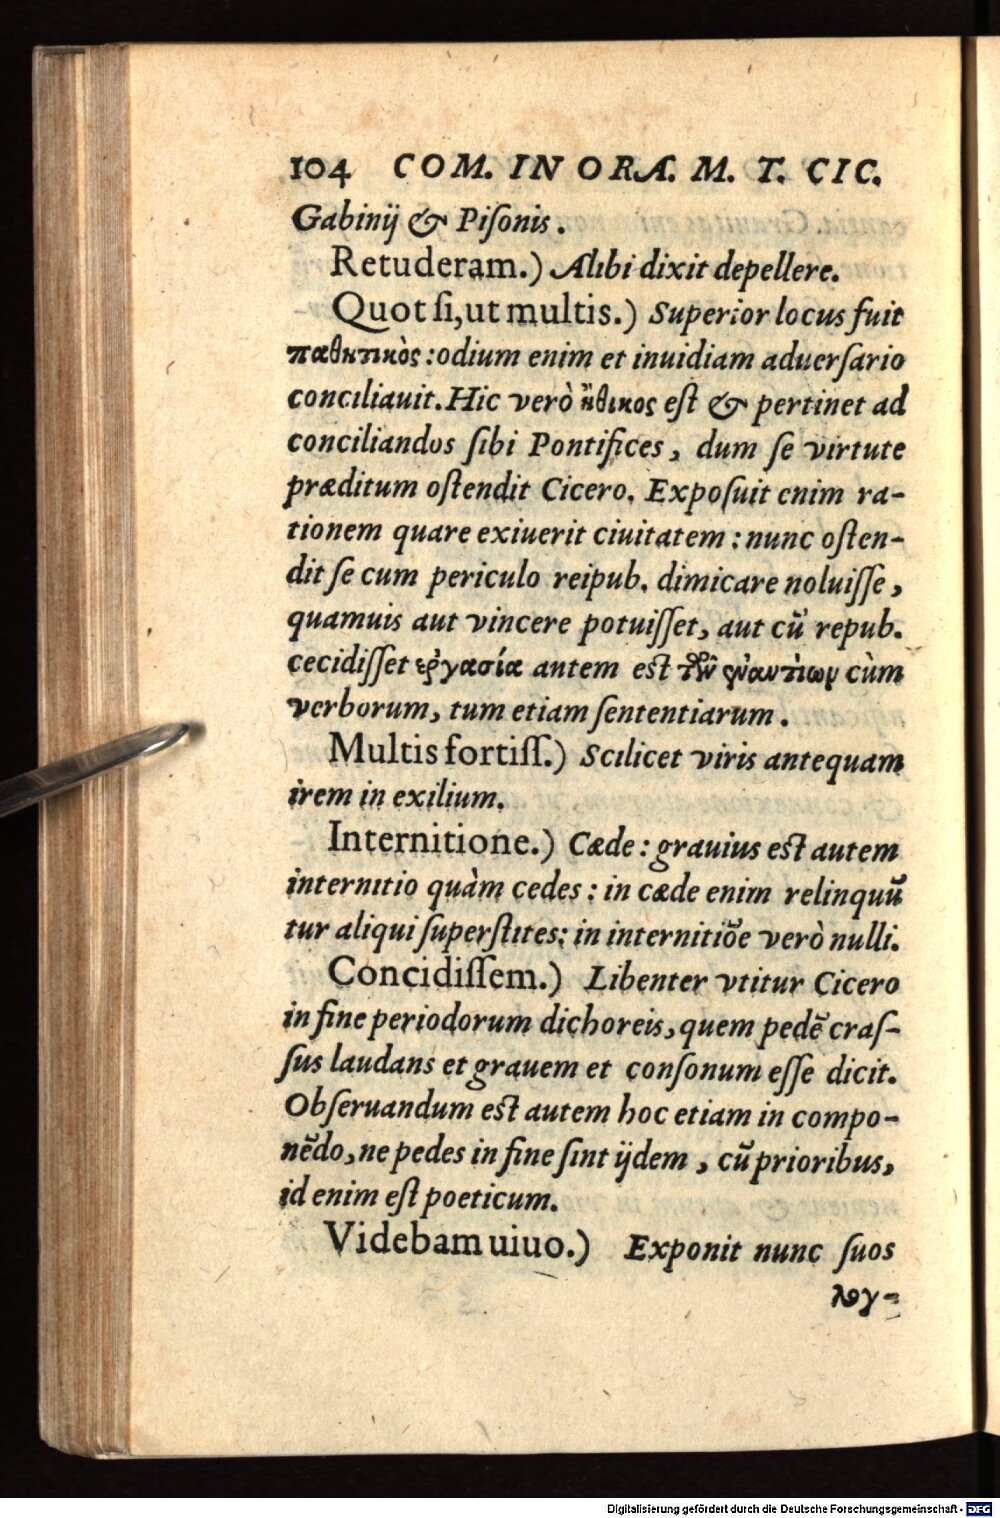 104 COM. IN ORA. M. T. CIC.
Gabinij & Piſonis.
Retuderam.) Alibi dixit depellere.
Quot ſi, ut multis.) Superior locus fuit
παθητικὸς: odium enim et inuidiam aduerſario
conciliauit. Hic verò ἤθικος eſt & pertinet ad
conciliandos ſibi Pontifices, dum ſe virtute
præditum oſtendit Cicero. Expoſuit enim ra-
tionem quare exiuerit ciuitatem: nunc oſten-
dit ſe cum periculo reipub. dimicare noluiſſe,
quamuis aut vincere potuiſſet, aut cū repub.
cecidiſſet ἐργασία antem est τῶν ἐναντίων cùm
verborum, tum etiam ſententiarum.
Multis fortiſſ.) Scilicet viris antequam
irem in exilium.
Internitione.) Cæde: grauius est autem
internitio quàm cedes: in cæde enim relinquū
tur aliqui ſuperſtites: in internitiōe verò nulli.
Concidiſſem.) Libenter vtitur Cicero
in fine periodorum dichoreis, quem pedē craſ-
ſus laudans et grauem et conſonum eſſe dicit.
Obſeruandum est autem hoc etiam in compo-
nēdo, ne pedes in fine ſint ijdem, cū prioribus,
id enim eſt poeticum.
Videbam uiuo.) Exponit nunc ſuos
λογ-
Digitalisierung gefördert durch die Deutsche Forschungsgemeinschaft - DFG